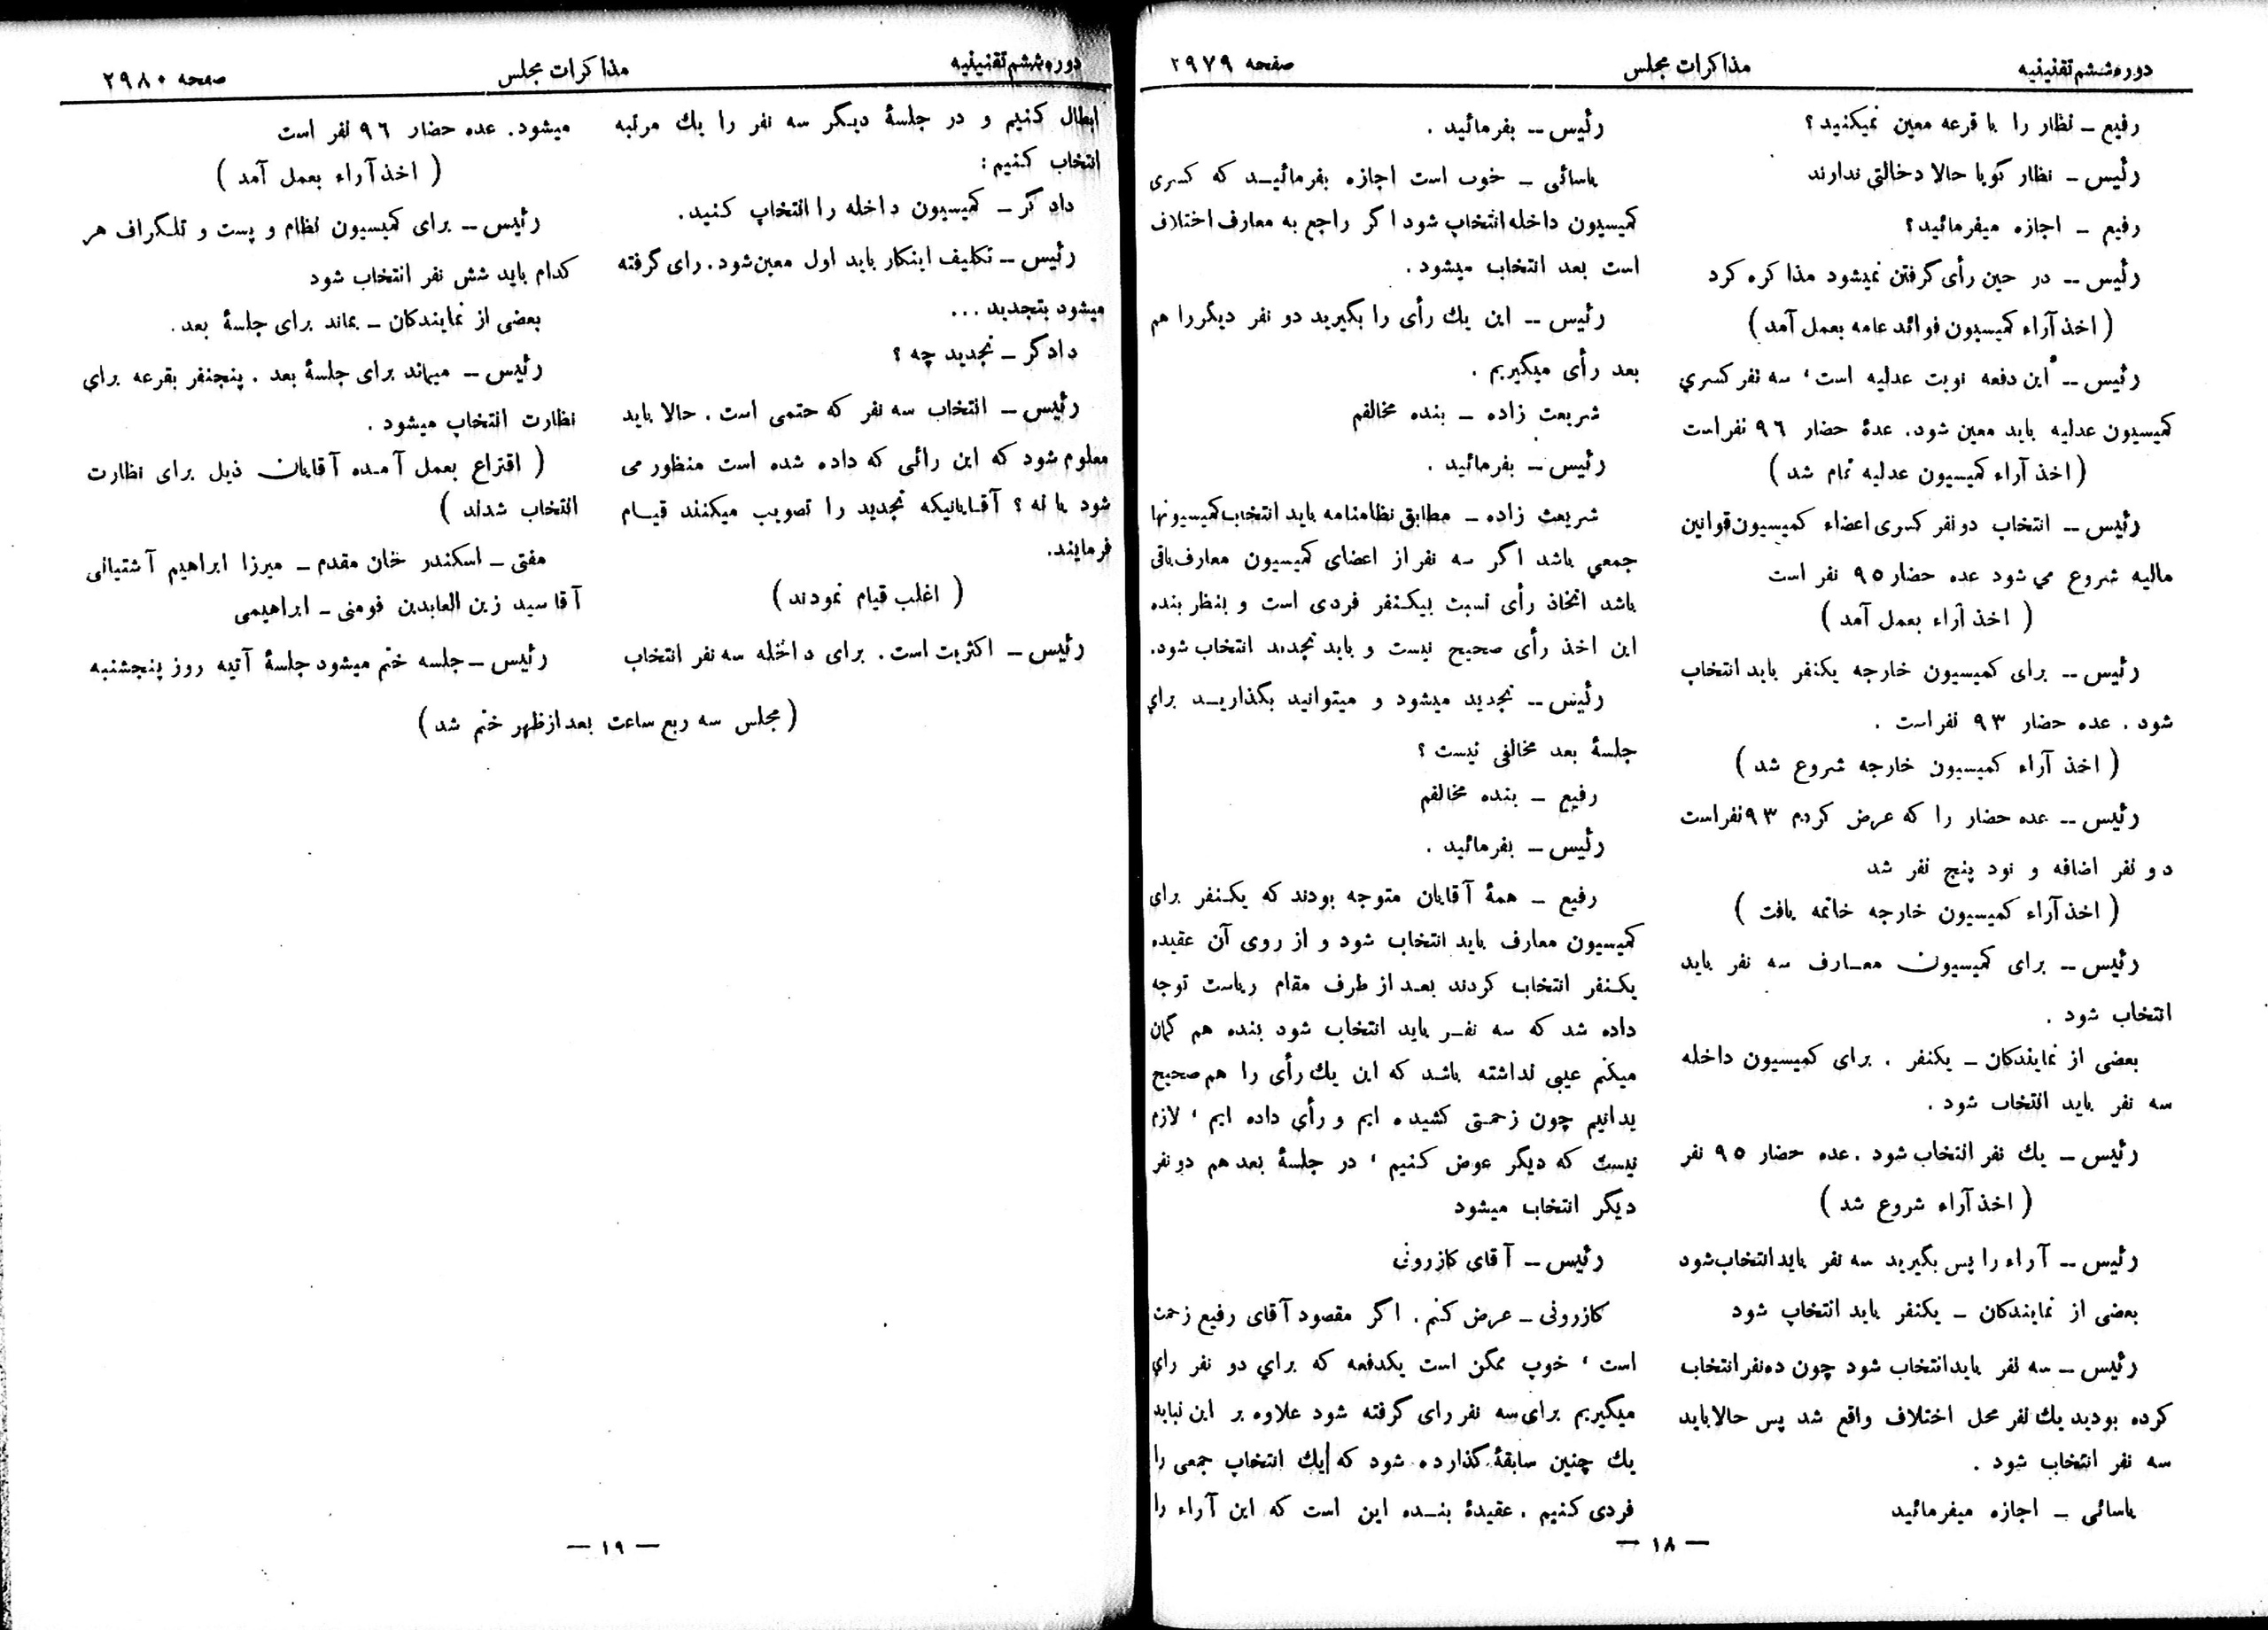 دوره ششم تقنینیه
مذاکرات مجلس
صفحه ۲۹۷۹
رفیع ـ نظار را با قرعه معین نمیکنید؟
رئیس ـ نظار گویا حالا دخالتی ندارند
رفیع ـ اجازه میفرمائید؟
رئیس ـ در حین رأی گرفتن نمیشود مذاکره کرد
( اخذ آراء کمیسیون فوائد عامه بعمل آمد )
رئیس ـ این دفعه نوبت عدلیه است، سه نفر کسري
کمیسیون عدلیه باید معین شود. عدهٔ حضار ۹۶ نفر است
( اخذ آراء کمیسیون عدلیه تمام شد )
رئیس ـ انتخاب دو نفر کسری اعضاء کمیسیون قوانین
مالیه شروع می شود عده حضار ۹۵ نفر است
( اخذ آراء بعمل آمد )
رئیس ـ برای کمیسیون خارجه یکنفر باید انتخاب
شود . عده حضار ۹۳ نفر است .
( اخذ آراء کمیسیون خارجه شروع شد )
رئیس ـ عده حضار را که عرض کردم ۹۳ نفر است
دو نفر اضافه و نود پنج نفر شد
( اخذ آراء کمیسیون خارجه خاتمه یافت )
رئیس ـ برای کمیسیون معارف سه نفر باید
انتخاب شود .
بعضی از نمایندکان ـ یکنفر . برای کمیسیون داخله
سه نفر باید انتخاب شود .
رئیس ـ یك نفر انتخاب شود . عده حضار ۹۵ نفر
( اخذ آراء شروع شد )
رئیس ـ آراء را پس بگیرید سه نفر باید انتخاب شود
بعضی از نمایندکان ـ یکنفر باید انتخاب شود
رئیس ـ سه نفر باید انتخاب شود چون ده نفر انتخاب
کرده بودید یك نفر محل اختلاف واقع شد پس حالا باید
سه نفر انتخاب شود .
یاسائی ـ اجازه میفرمائید
رئیس ـ بفرمائید .
یاسائی ـ خوب است اجازه بفرمائید که کسری
کمیسیون داخله انتخاب شود اگر راجع به معارف اختلاف
است بعد انتخاب میشود .
رئیس ـ این یك رأی را بگیرید دو نفر دیگر را هم
بعد رأی میگیریم .
شریعت زاده ـ بنده مخالفم
رئیس ـ بفرمائید .
شریعت زاده ـ مطابق نظامنامه باید انتخاب کمیسیونها
جمعي باشد اگر سه نفر از اعضای کمیسیون معارف باقی
باشد اتخاذ رأی نسبت بیکنفر فردی است و بنظر بنده
این اخذ رأی صحیح نیست و باید تجدید انتخاب شود.
رئیس ـ تجدید میشود و میتوانید بگذارید براي
جلسهٔ بعد مخالفی نیست ؟
رفیع ـ بنده مخالفم
رئیس ـ بفرمائید .
رفیع ـ همهٔ آقایان متوجه بودند که یکنفر برای
کمیسیون معارف باید انتخاب شود و از روی آن عقیده
یکنفر انتخاب کردند بعد از طرف مقام ریاست توجه
داده شد که سه نفر باید انتخاب شود بنده هم گمان
میکنم عیبی نداشته باشد که این یك رأی را هم صحیح
بدانیم چون زحمتی کشیده ایم و رأی داده ایم ، لازم
نیست که دیگر عوض کنیم ، در جلسهٔ بعد هم دو نفر
دیگر انتخاب میشود
رئیس ـ آقای کازرونی
کازرونی ـ عرض کنم. اگر مقصود آقای رفیع زحمت
است ، خوب ممکن است یکدفعه که براي دو نفر راي
میگیریم برای سه نفر رای گرفته شود علاوه بر این نباید
یك چنین سابقهٔ گذارده شود که یك انتخاب جمعی را
فردی کنیم . عقیدهٔ بنده این است که این آراء را
— ۱۸ —
دوره ششم تقنینیه
مذاکرات مجلس
صفحه ۲۹۸۰
ابطال کنیم و در جلسهٔ دیگر سه نفر را یك مرتبه
انتخاب کنیم :
دادگر ـ کمیسیون داخله را انتخاب کنید.
رئیس ـ تکلیف اینکار باید اول معین شود. رای گرفته
میشود بتجدید ...
دادگر ـ تجدید چه ؟
رئیس ـ انتخاب سه نفر که حتمی است . حالا باید
معلوم شود که این رائی که داده شده است منظور می
شود یا نه ؟ آقایانیکه تجدید را تصویب میکنند قیام
فرمایند.
( اغلب قیام نمودند )
رئیس ـ اکثریت است . برای داخله سه نفر انتخاب
میشود. عده حضار ۹۶ نفر است
( اخذ آراء بعمل آمد )
رئیس ـ برای کمیسیون نظام و پست و تلگراف هر
کدام باید شش نفر انتخاب شود
بعضی از نمایندکان ـ بماند برای جلسهٔ بعد .
رئیس ـ میماند برای جلسهٔ بعد . پنجنفر بقرعه برای
نظارت انتخاب میشود .
( اقتراع بعمل آمده آقایان ذیل برای نظارت
انتخاب شدند )
مفتی ـ اسکندر خان مقدم ـ میرزا ابراهیم آشتیانی
آقا سید زین العابدین فومنی ـ ابراهیمی
رئیس ـ جلسه ختم میشود جلسهٔ آتیه روز پنجشنبه
( مجلس سه ربع ساعت بعد از ظهر ختم شد )
— ۱۹ —